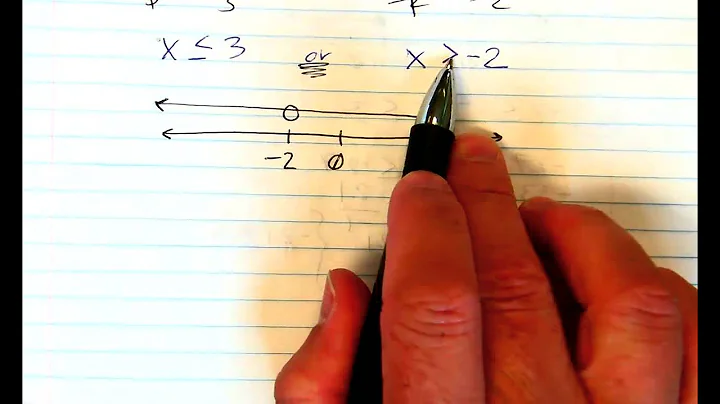 x ≤ 3 or x > -2
-2 0